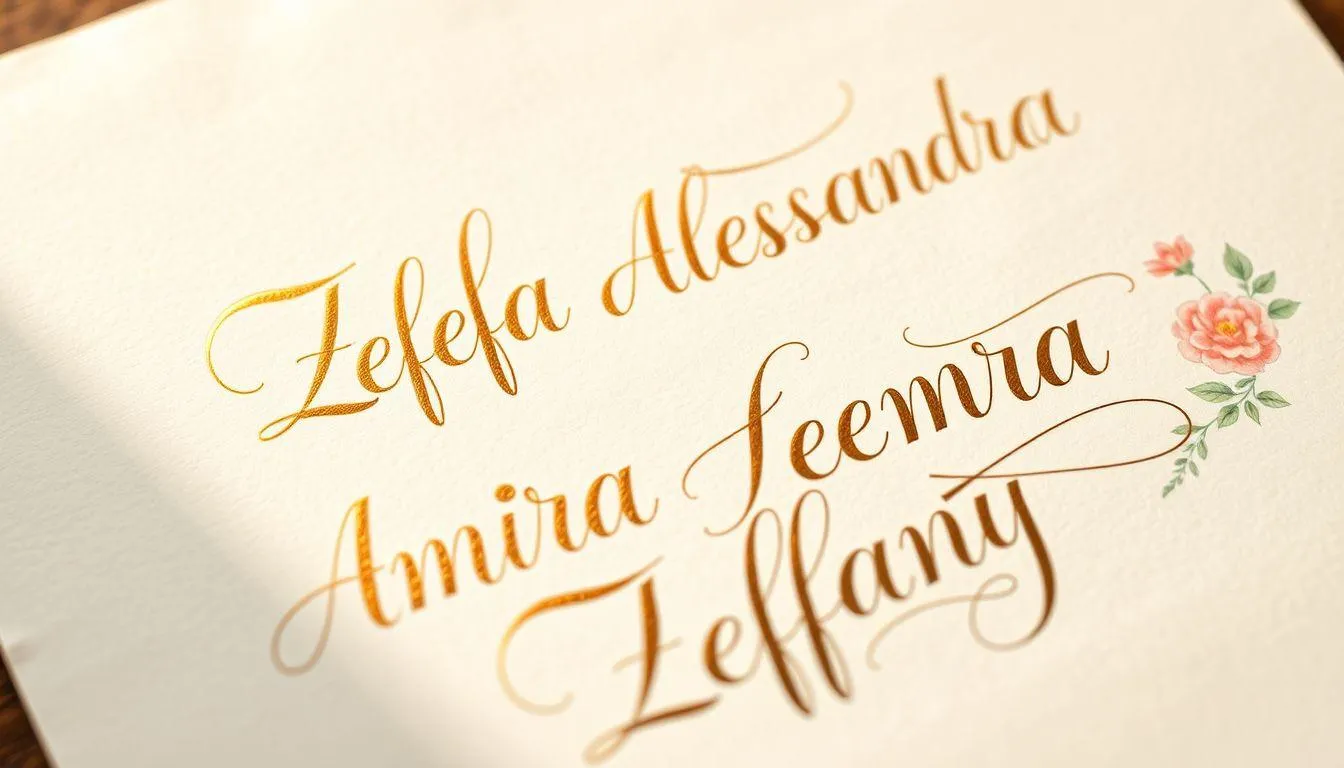 Zefefa Alessandra
Amira Feemra
Zeffany